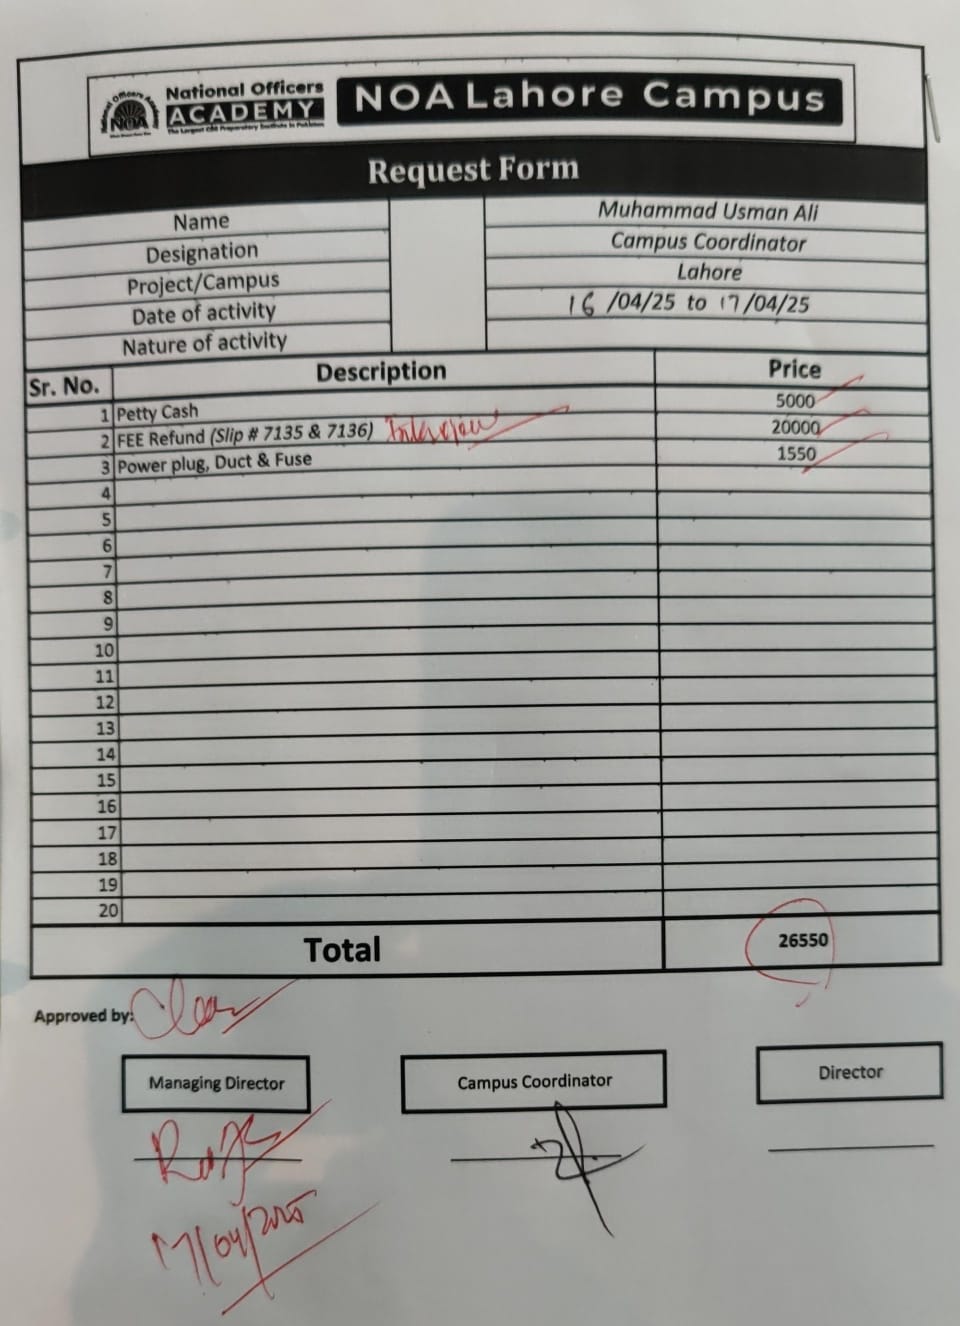 National Officers
ACADEMY
The Largest CSS Preparatory Institute in Pakistan
NOA
NOA Lahore Campus
Request Form
Name Muhammad Usman Ali
Designation Campus Coordinator
Project/Campus Lahore
Date of activity 16 /04/25 to 17/04/25
Nature of activity
Sr. No. Description Price
1 Petty Cash 5000
2 FEE Refund (Slip # 7135 & 7136) Interview 20000
3 Power plug, Duct & Fuse 1550
4
5
6
7
8
9
10
11
12
13
14
15
16
17
18
19
20
Total 26550
Approved by: Clear
Managing Director Campus Coordinator Director
17/04/2025